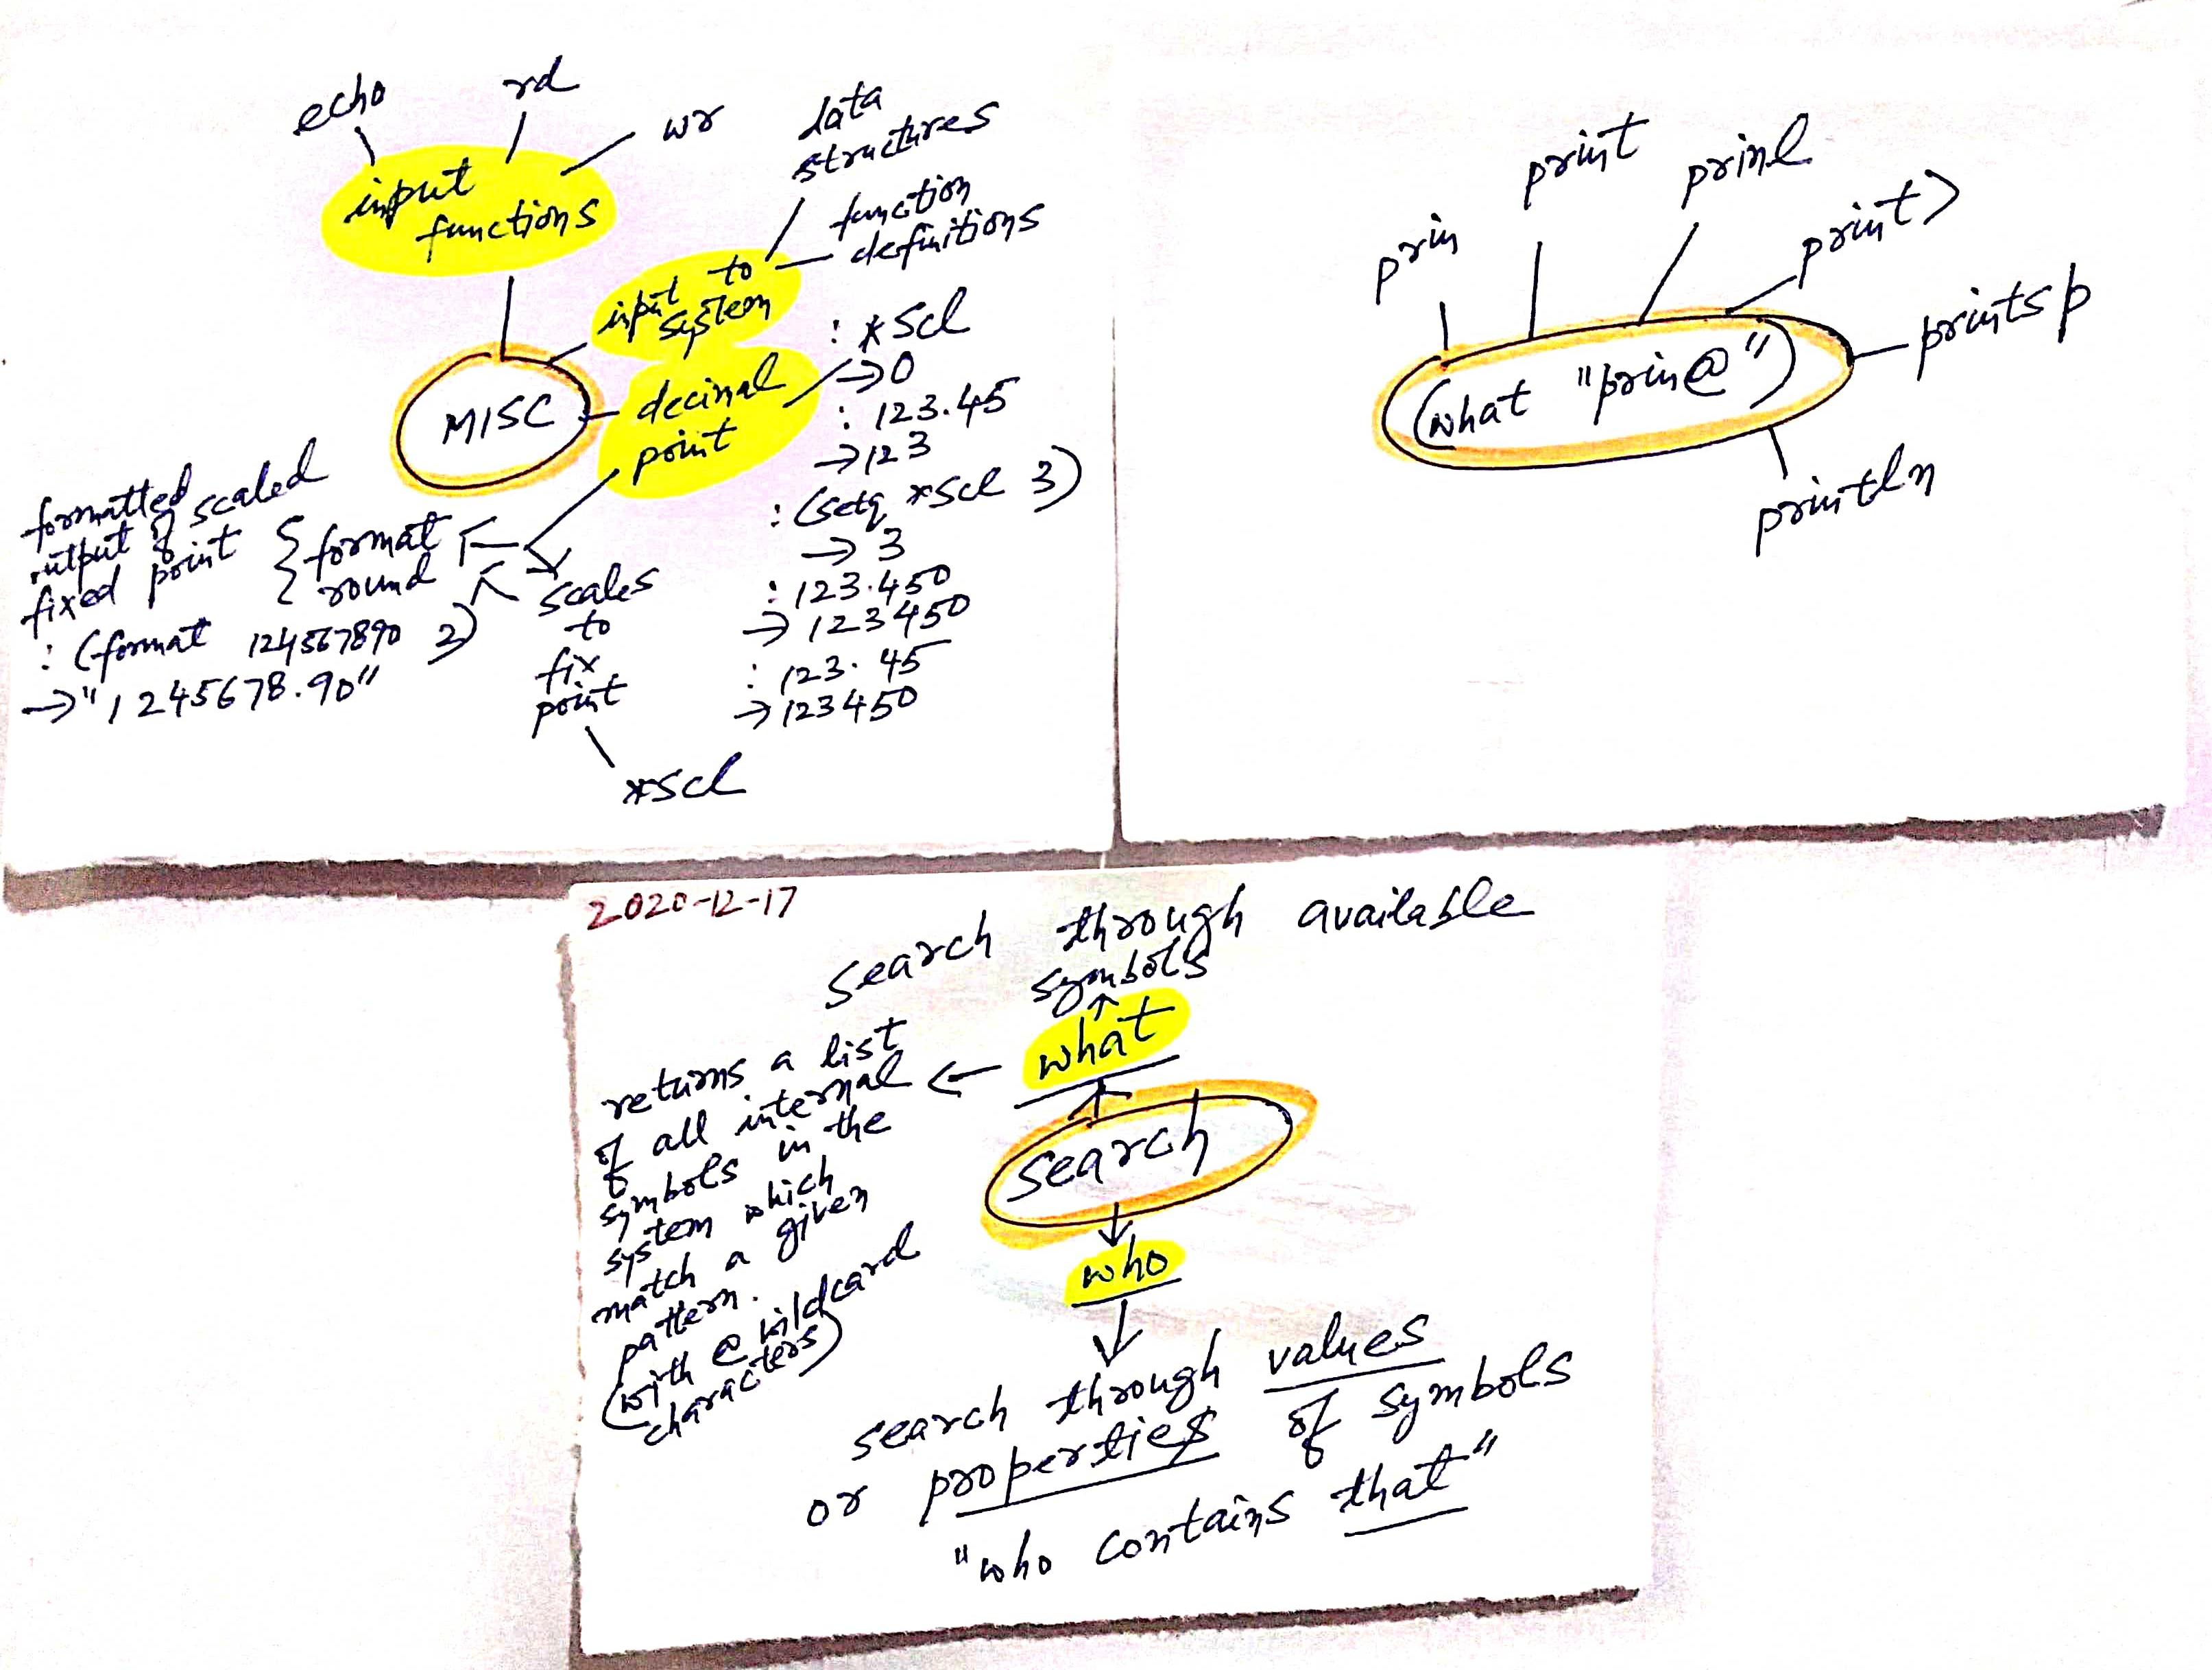 echo
rd
wr
input
functions
data
structures
function
definitions
input to
system
MISC
decimal
point
: *Scl
→ 0
: 123.45
→ 123
: (setq *Scl 3)
→ 3
: 123.450
→ 123450
: 123.45
→ 123450
formatted
output of scaled
fixed point
{ format
{ round
: (format 124567890 2)
→ "1245678.90"
scales
to
fix
point
*scl
prin
print
prinl
print>
printsp
println
(what "prin@")
2020-12-17
search through available
symbols
↑
what
←
returns a list
of all internal
symbols in the
system which
match a given
pattern.
(with @ wildcard
characters)
search
who
search through values
or properties of symbols
"who contains that"